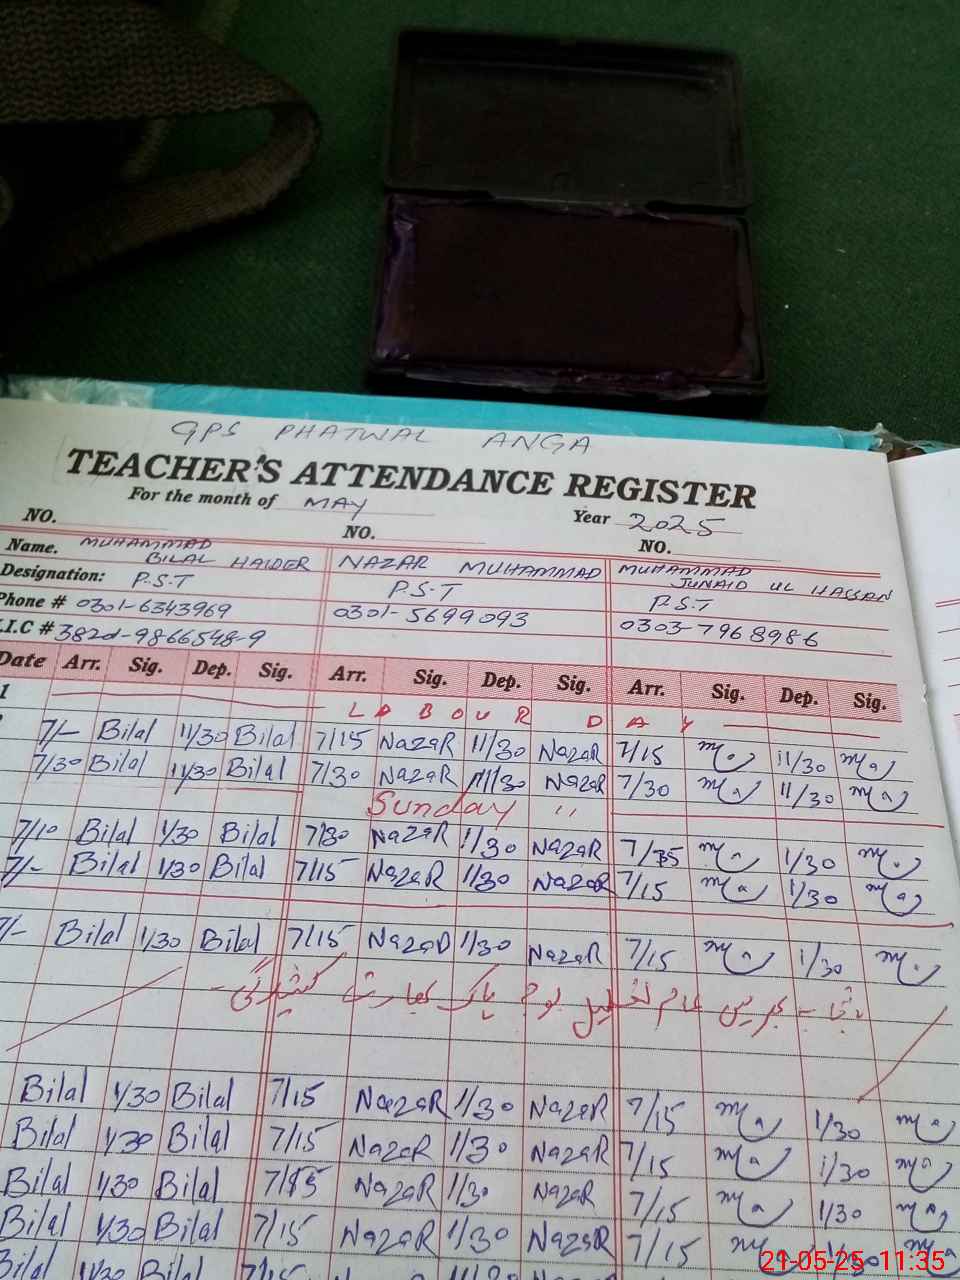 GPS PHATWAL ANGA
TEACHER'S ATTENDANCE REGISTER
For the month of MAY Year 2025
NO. NO. NO.
Name. MUHAMMAD BILAL HAIDER NAZAR MUHAMMAD MUHAMMAD JUNAID UL HASSAN
Designation: P.S.T P.S.T P.S.T
Phone # 0301-6343969 0301-5699093 0303-7968986
I.C # 3820-9866548-9
Date Arr. Sig. Dep. Sig. Arr. Sig. Dep. Sig. Arr. Sig. Dep. Sig.
1 LABOUR DAY
7/- Bilal 11/30 Bilal 7/15 NazaR 11/30 NazaR 7/15 11/30
7/30 Bilal 11/30 Bilal 7/30 NazaR 11/30 NazaR 7/30 11/30
Sunday "
7/10 Bilal 1/30 Bilal 7/30 NazaR 1/30 NazaR 1/30
7/- Bilal 1/30 Bilal 7/15 NazaR 1/30 NazaR 7/15 1/30
7/- Bilal 1/30 Bilal 7/15 NazaR 1/30 NazaR 7/15 1/30
عام تعطیل بوجہ پاک بھارت کشیدگی
Bilal 1/30 Bilal 7/15 NazaR 1/30 NazaR 7/15 1/30
Bilal 1/30 Bilal 7/15 NazaR 1/30 NazaR 7/15 1/30
Bilal 1/30 Bilal 7/15 NazaR 1/30 NazaR 7/15 1/30
Bilal 1/30 Bilal 7/15 NazaR 1/30 NazaR 7/15
Bilal 1/30 Bilal 7/15 NazaR 1/30 NazaR
21-05-25 11:35